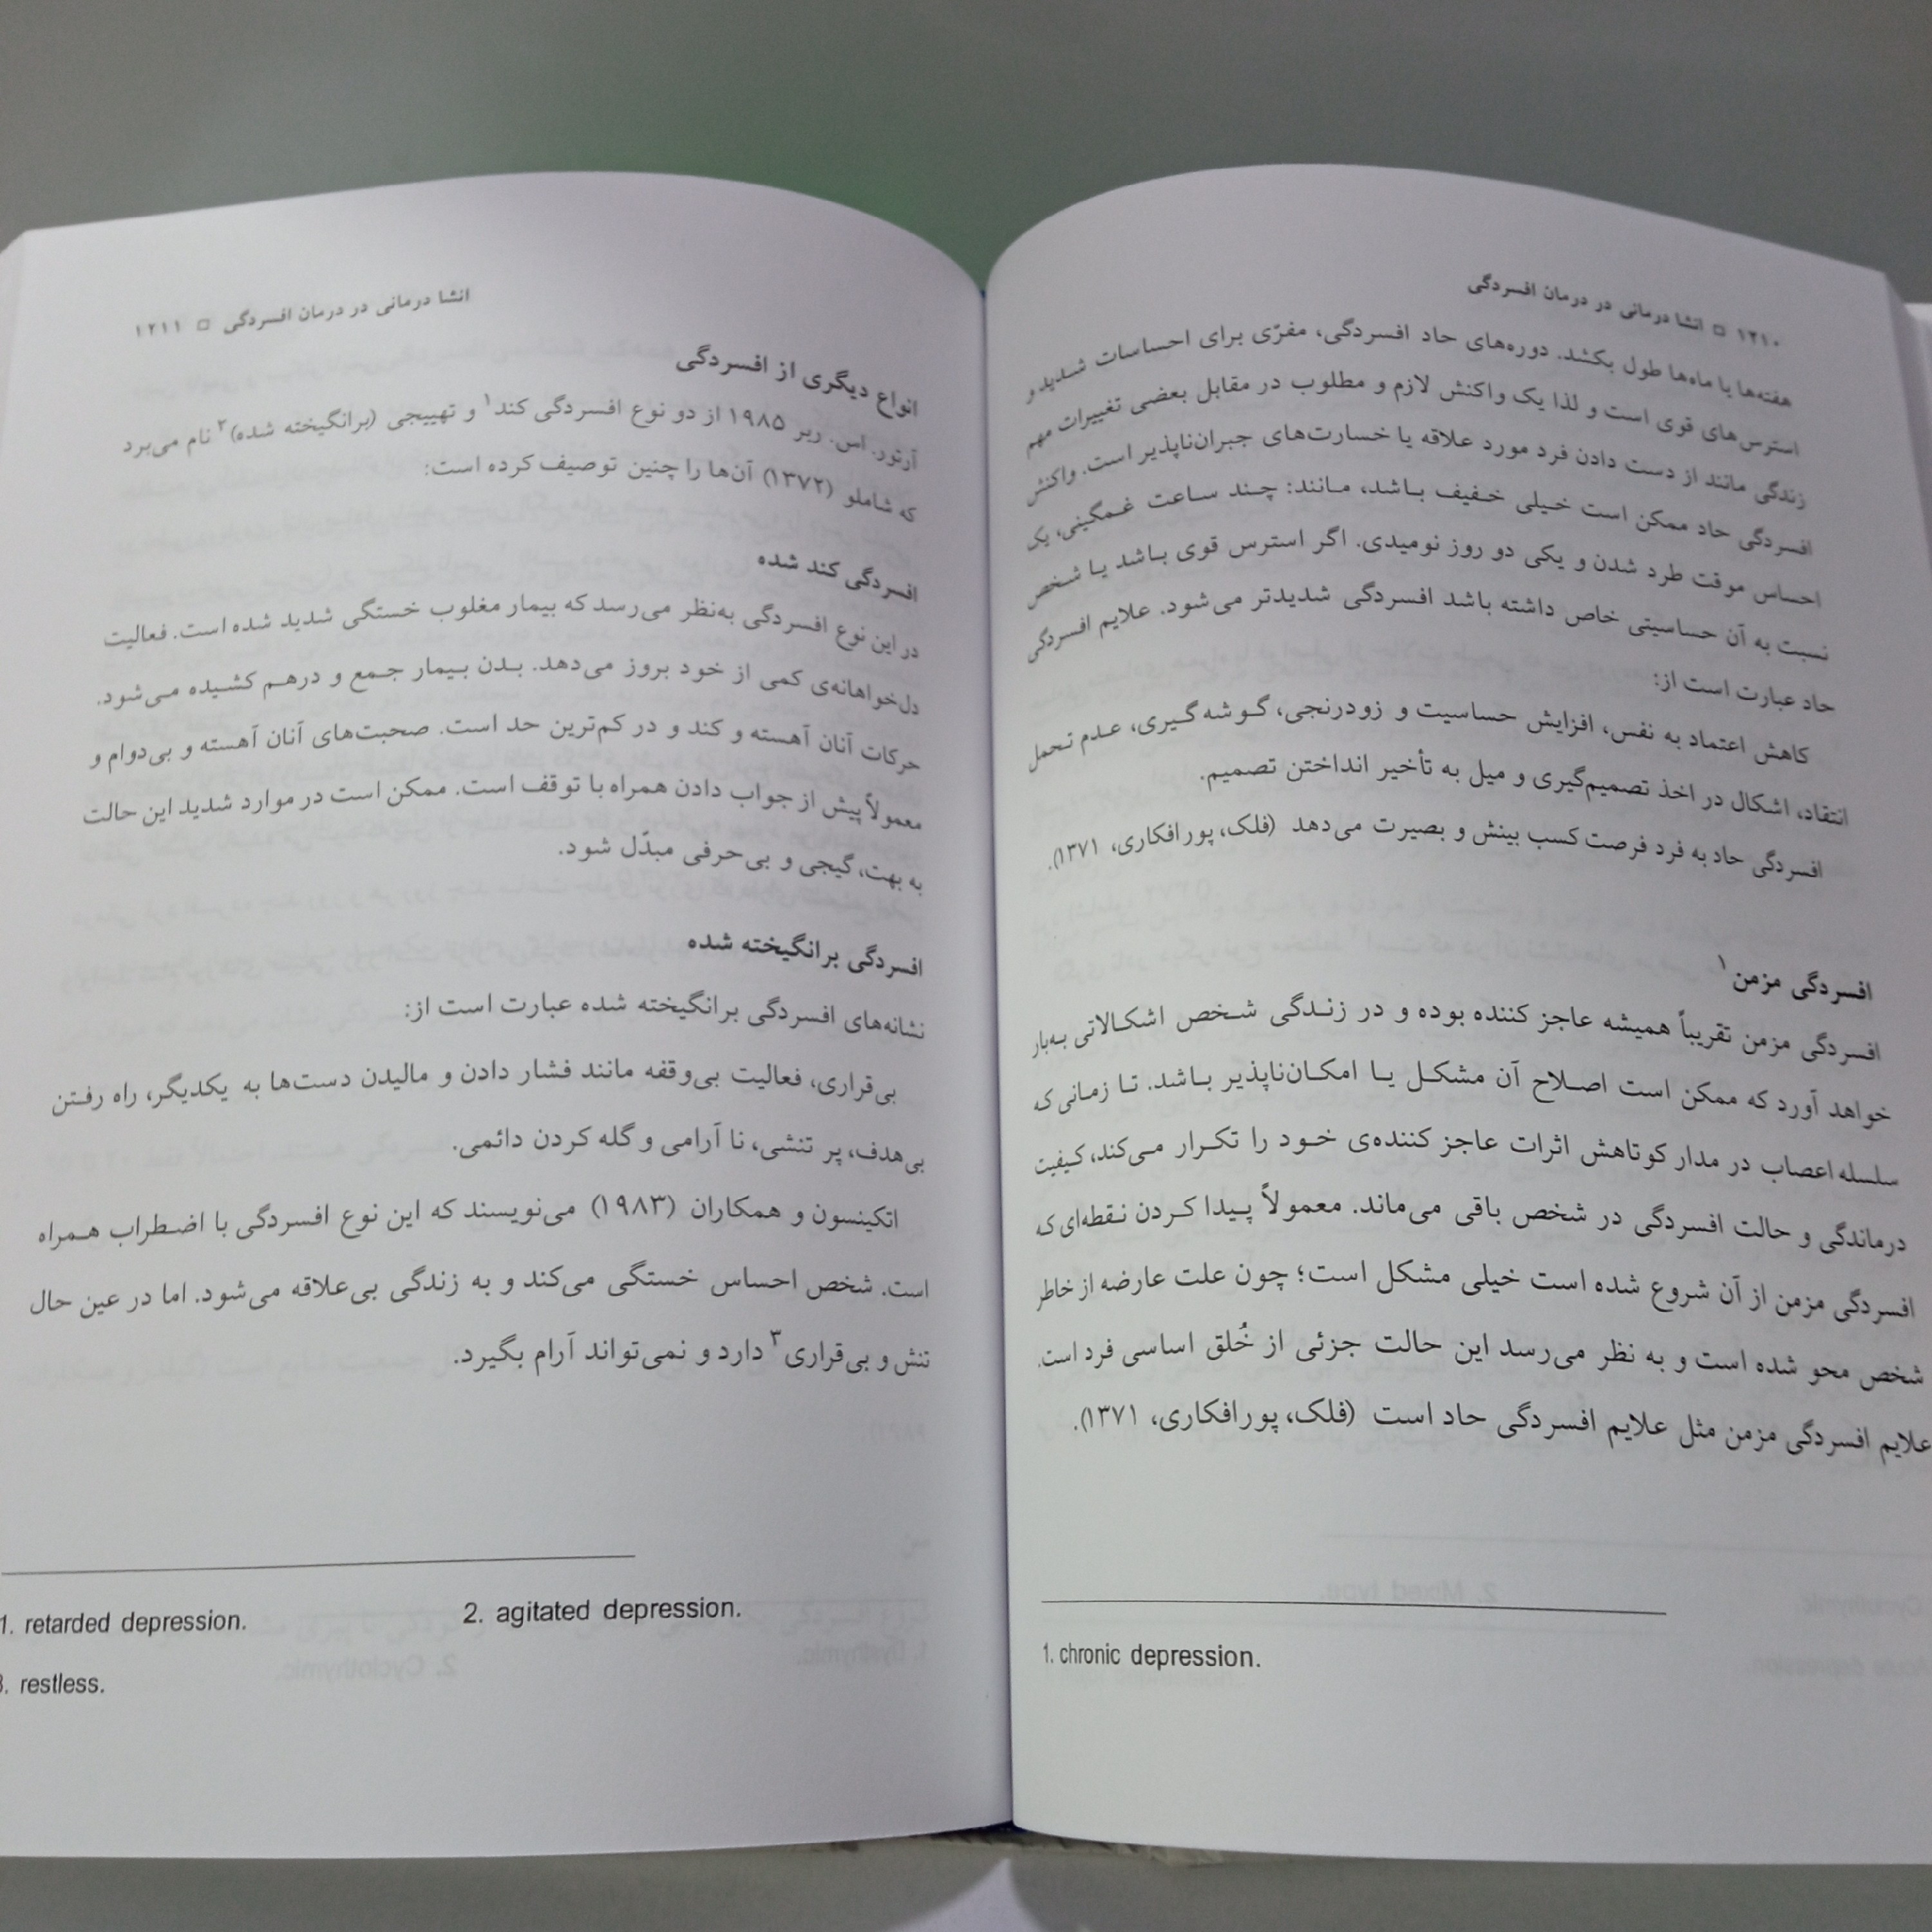 ۱۲۱۰ □ انشا درمانی در درمان افسردگی
هفته‌ها یا ماه‌ها طول بکشد. دوره‌های حاد افسردگی، مفرّی برای احساسات شدید و
استرس‌های قوی است و لذا یک واکنش لازم و مطلوب در مقابل بعضی تغییرات مهم
زندگی مانند از دست دادن فرد مورد علاقه یا خسارت‌های جبران‌ناپذیر است. واکنش
افسردگی حاد ممکن است خیلی خفیف باشد، مانند: چند ساعت غمگینی، یک
احساس موقت طرد شدن و یکی دو روز نومیدی. اگر استرس قوی باشد یا شخص
نسبت به آن حساسیتی خاص داشته باشد افسردگی شدیدتر می‌شود. علایم افسردگی
حاد عبارت است از:
کاهش اعتماد به نفس، افزایش حساسیت و زودرنجی، گوشه‌گیری، عدم تحمل
انتقاد، اشکال در اخذ تصمیم‌گیری و میل به تأخیر انداختن تصمیم.
افسردگی حاد به فرد فرصت کسب بینش و بصیرت می‌دهد (فلک، پورافکاری، ۱۳۷۱).
افسردگی مزمن۱
افسردگی مزمن تقریباً همیشه عاجز کننده بوده و در زندگی شخص اشکالاتی به‌بار
خواهد آورد که ممکن است اصلاح آن مشکل یا امکان‌ناپذیر باشد. تا زمانی که
سلسله اعصاب در مدار کوتاهش اثرات عاجز کننده‌ی خود را تکرار می‌کند، کیفیت
درماندگی و حالت افسردگی در شخص باقی می‌ماند. معمولاً پیدا کردن نقطه‌ای که
افسردگی مزمن از آن شروع شده است خیلی مشکل است؛ چون علت عارضه از خاطر
شخص محو شده است و به نظر می‌رسد این حالت جزئی از خُلق اساسی فرد است.
علایم افسردگی مزمن مثل علایم افسردگی حاد است (فلک، پورافکاری، ۱۳۷۱).
1. chronic depression.
انشا درمانی در درمان افسردگی □ ۱۲۱۱
انواع دیگری از افسردگی
آرتور. اس. ربر ۱۹۸۵ از دو نوع افسردگی کند۱ و تهییجی (برانگیخته شده)۲ نام می‌برد
که شاملو (۱۳۷۲) آن‌ها را چنین توصیف کرده است:
افسردگی کند شده
در این نوع افسردگی به‌نظر می‌رسد که بیمار مغلوب خستگی شدید شده است. فعالیت
دل‌خواهانه‌ی کمی از خود بروز می‌دهد. بدن بیمار جمع و درهم کشیده می‌شود.
حرکات آنان آهسته و کند و در کم‌ترین حد است. صحبت‌های آنان آهسته و بی‌دوام و
معمولاً پیش از جواب دادن همراه با توقف است. ممکن است در موارد شدید این حالت
به بهت، گیجی و بی‌حرفی مبدّل شود.
افسردگی برانگیخته شده
نشانه‌های افسردگی برانگیخته شده عبارت است از:
بی‌قراری، فعالیت بی‌وقفه مانند فشار دادن و مالیدن دست‌ها به یکدیگر، راه رفتن
بی‌هدف، پر تنشی، نا آرامی و گله کردن دائمی.
اتکینسون و همکاران (۱۹۸۳) می‌نویسند که این نوع افسردگی با اضطراب همراه
است. شخص احساس خستگی می‌کند و به زندگی بی‌علاقه می‌شود. اما در عین حال
تنش و بی‌قراری۳ دارد و نمی‌تواند آرام بگیرد.
1. retarded depression. 2. agitated depression.
3. restless.